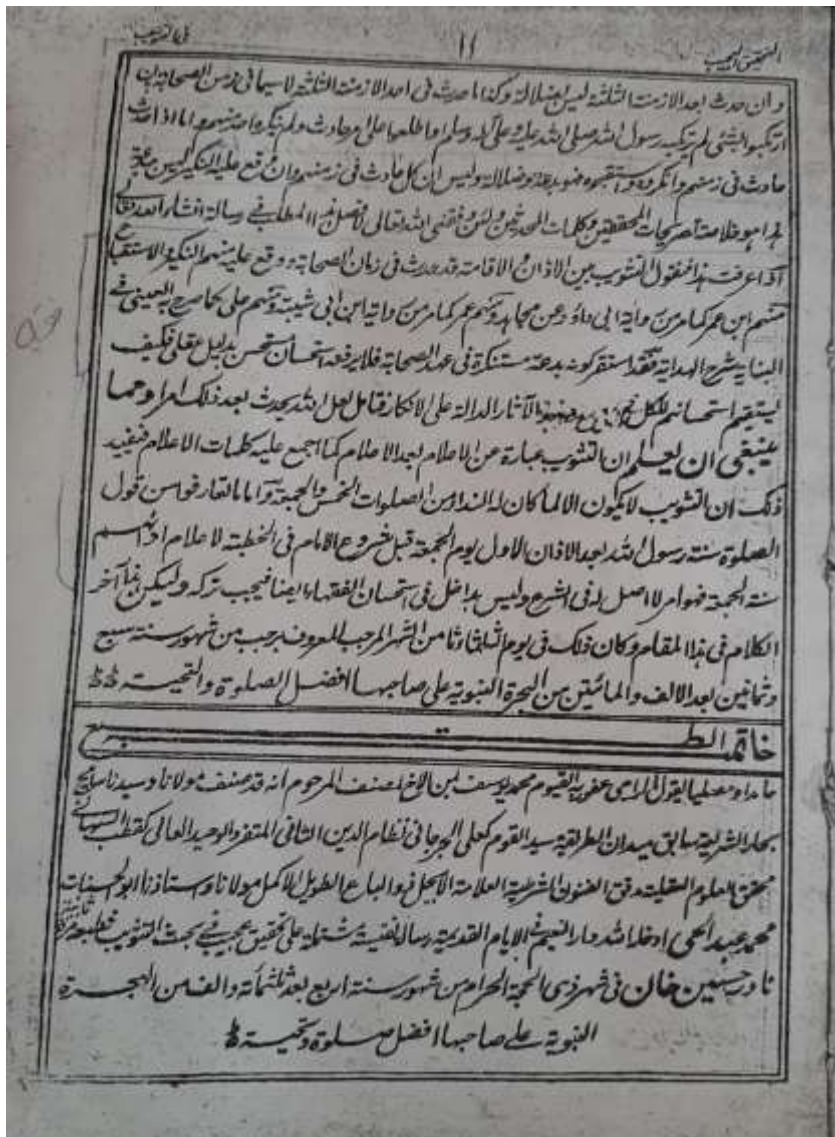 التحقيق العجيب ١١ فى التثويب
وان حدث بعد الازمنة الثلثة ليس بضلالة وكذا ما حدث فى احد الازمنة الثلثة لا سيما فى زمن الصحابة بان
ارتكبوا الشئ لم يرتكبه رسول الله صلى الله عليه وعلى آله وسلم او اطلعوا على امر حادث ولم ينكره احد منهم واما اذا حدث
حادث فى زمنهم وانكروه واستقبحوه فهو بدعة وضلالة وليس ان كل حادث فى زمنهم وان وقع عليه النكير ليس ببدعة
هذا هو خلاصة تصريحات المحققين وكلمات المحدثين ولئن وفقنى الله تعالى لافصلن هذا المطلب فى رسالة انشاء الله تعالى
اذا عرفت هذا فنقول التثويب بين الاذان والاقامة قد حدث فى زمان الصحابة ووقع عليه منهم النكير والاستقباح
منهم ابن عمر كما مر من رواية ابى داؤد وعن مجاهد ومنهم عمر كما مر من رواية ابن ابى شيبة ومنهم على كما صرح به العينى فى
البناية شرح الهداية فقد استقر كونه بدعة مستنكرة فى عهد الصحابة فلا يرفعه استحسان مستحسن بدليل عقلى فكيف
يستقيم استحسانهم للكل مع الآثار الدالة على الانكار فتامل لعل الله يحدث بعد ذلك امرا ومما
ينبغى ان يعلم ان التثويب عبارة عن الاعلام بعد الاعلام كما اجمع عليه كلمات الاعلام فيفيد
ذلك ان التثويب لا يكون الا لما كان له النداء من الصلوات الخمس والجمعة واما ما تعارفوا من قول
الصلوة سنة رسول الله بعد الاذان الاول يوم الجمعة قبل شروع الامام فى الخطبة لاعلام ادائهم
سنة الجمعة فهو امر لا اصل له فى الشرع وليس بداخل فى استحسان الفقهاء ايضا فيجب تركه وليكن هذا آخر
الكلام فى هذا المقام وكان ذلك فى يوم الثلثاء من الشهر المرجب المعروف برجب من شهور سنة سبع
وثمانين بعد الالف والمائتين من الهجرة النبوية على صاحبها افضل الصلوة والتحية
خاتمة الطبع
حامدا ومصليا يقول الراجى عفو ربه القيوم محمد يوسف ابن المصنف المرحوم انه قد صنف مولانا وسيدنا سابح
بحار الشريعة سابق ميدان الطريقة سيد القوم كعلى الجرجانى نظام الدين الثانى المتفرد الوحيد العالى كقطب السهالى
محقق العلوم العقلية مدقق الفنون الشرعية العلامة الابجل ذو الباع الطويل الاكمل مولانا واستاذنا ابو الحسنات
محمد عبد الحى ادخله الله دار النعيم فى الايام القديمة رسالة نفيسة مشتملة على تحقيق عجيب فى بحث التثويب فطبعه
نادر حسين خان فى شهر ذى الحجة الحرام من شهور سنة اربع بعد ثلثمائة والف من الهجرة
النبوية على صاحبها افضل صلوة وتحية